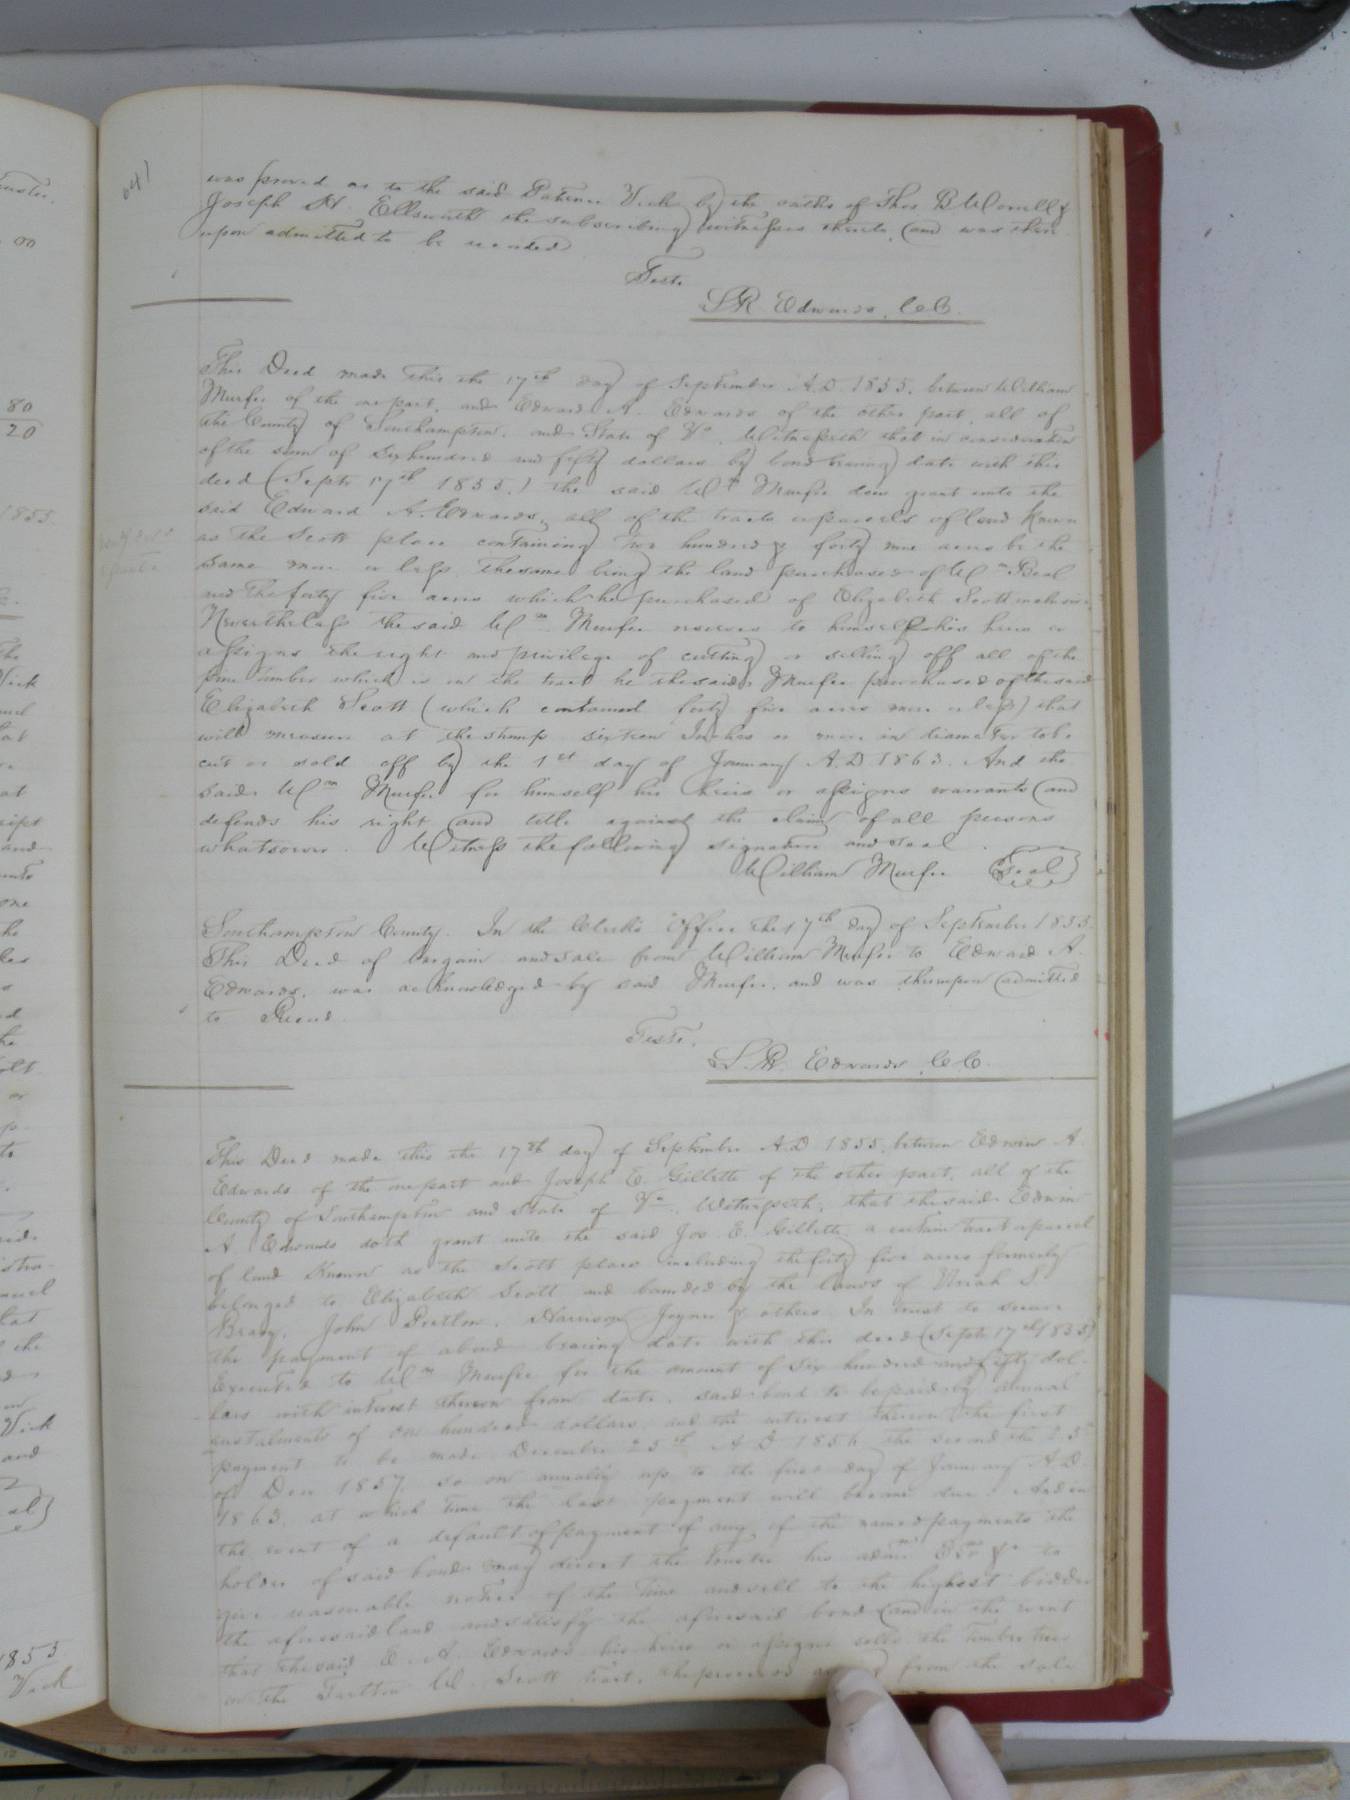 641
was proved as to the said Patience Vick by the oaths of Thos B Worrell &
Joseph H. Ellsworth the subscribing witnesses thereto, and was there
upon admitted to be recorded
Teste
L R Edwards, C C.
This Deed made this the 17th day of September A.D. 1855. between William
Murfee of the one part, and Edward A. Edwards of the other part, all of
the County of Southampton, and State of Va, Witnesseth that in consideration
of the sum of six hundred and fifty dollars by bond bearing date with this
deed (Septr 17th 1855.) the said Wm Murfee does grant unto the
said Edward A. Edwards, all of the tracts or parcels of land known
as the Scott place containing two hundred & forty nine acres be the
same more or less. the same being the land purchased of Wm Beal
and the forty five acres which he purchased of Elizabeth Scott inclusive
Nevertheless the said Wm Murfee reserves to himself his heirs or
assigns the right and privilege of cutting or selling off all of the
pine timber which is on the tract he the said Murfee purchased of the said
Elizabeth Scott (which contained forty five acres more or less) that
will measure at the stump sixteen Inches or more in diameter to be
cut or sold off by the 1st day of January A.D 1863. And the
said Wm Murfee for himself his heirs or assigns warrants and
defends his right and title against the claim of all persons
whatsoever. Witness the following signature and seal.
William Murfee Seal
Southampton County. In the Clerk's Office the 17th day of September 1855.
This Deed of bargain and sale from William Murfee to Edward A.
Edwards, was acknowledged by said Murfee, and was thereupon admitted
to Record.
Teste.
L. R. Edwards, C C.
This Deed made this the 17th day of September A.D 1855, between Edwin A.
Edwards of the one part and Joseph E. Gillette of the other part, all of the
County of Southampton and State of Va, Witnesseth, that the said Edwin
A Edwards doth grant unto the said Jos. E. Gillette a certain tract or parcel
of land known as the Scott place including the forty five acres formerly
belonged to Elizabeth Scott and bounded by the lands of Uriah S
Brady, John Pretlow, Harrison Joyner & others. In trust to secure
the payment of a bond bearing date with this deed (Septr 17th 1855)
Executed to Wm Murfee for the amount of six hundred and fifty dol-
lars with interest thereon from date, said bond to be paid by annual
instalments of one hundred dollars and the interest thereon the first
payment to be made December 25th A D 1856 the second the 25th
of Decr 1857, so on annually up to the first day of January A D
1863, at which time the last payment will become due. And in
the event of a default of payment of any of the named payments the
holder of said bonds may direct the Trustee his admr Exr &c to
give reasonable notice of the time and sell to the highest bidder
the aforesaid land and satisfy the aforesaid bond and in the event
that the said E. A. Edwards his heirs or assigns sells the timber trees
on the Scott tract, the proceeds from the sale